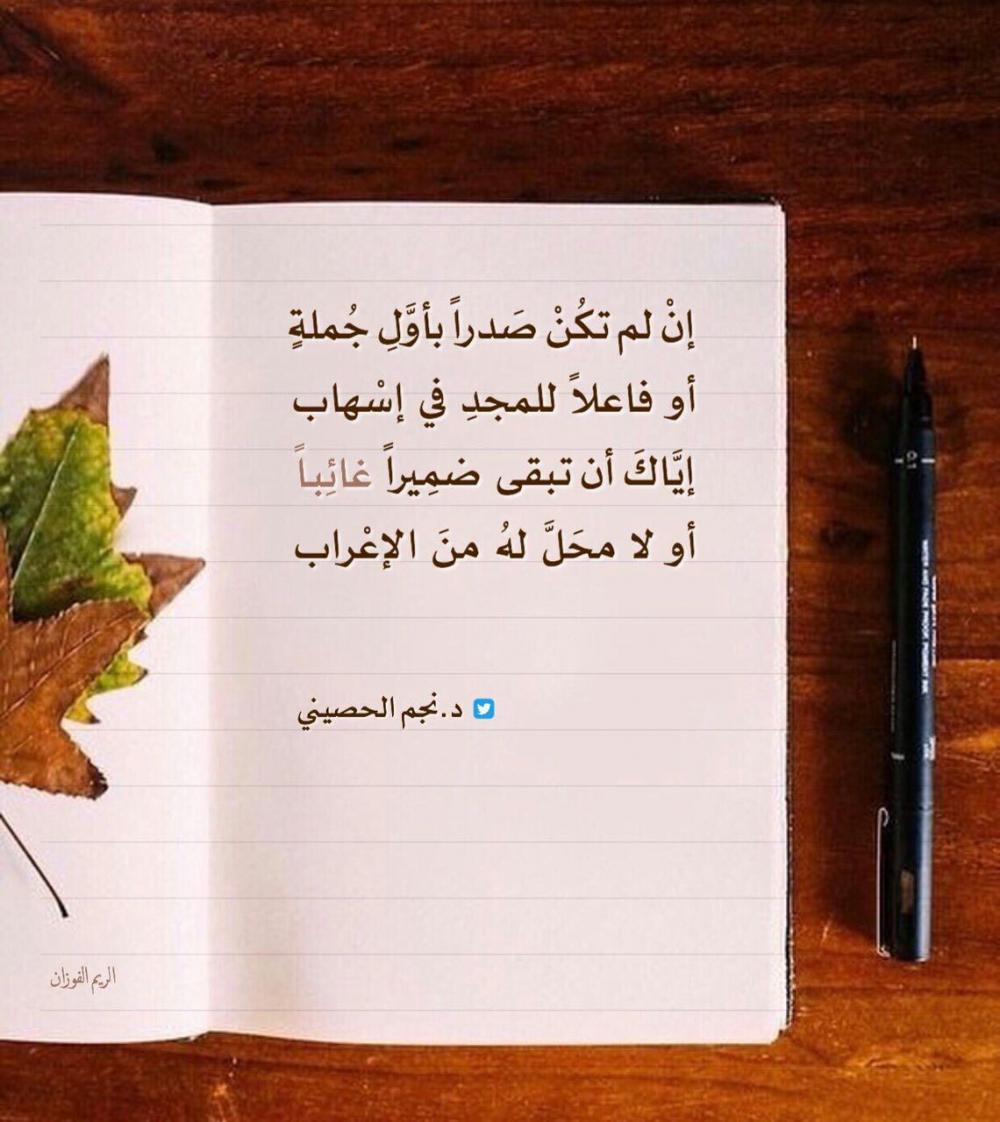 إنْ لم تكُنْ صَدراً بأوَّلِ جُملةٍ
أو فاعلاً للمجدِ في إسْهاب
إيَّاكَ أن تبقى ضمِيراً غائِباً
أو لا محَلَّ لهُ منَ الإعْراب
د.نجم الحصيني
الريم الفوزان
0.1